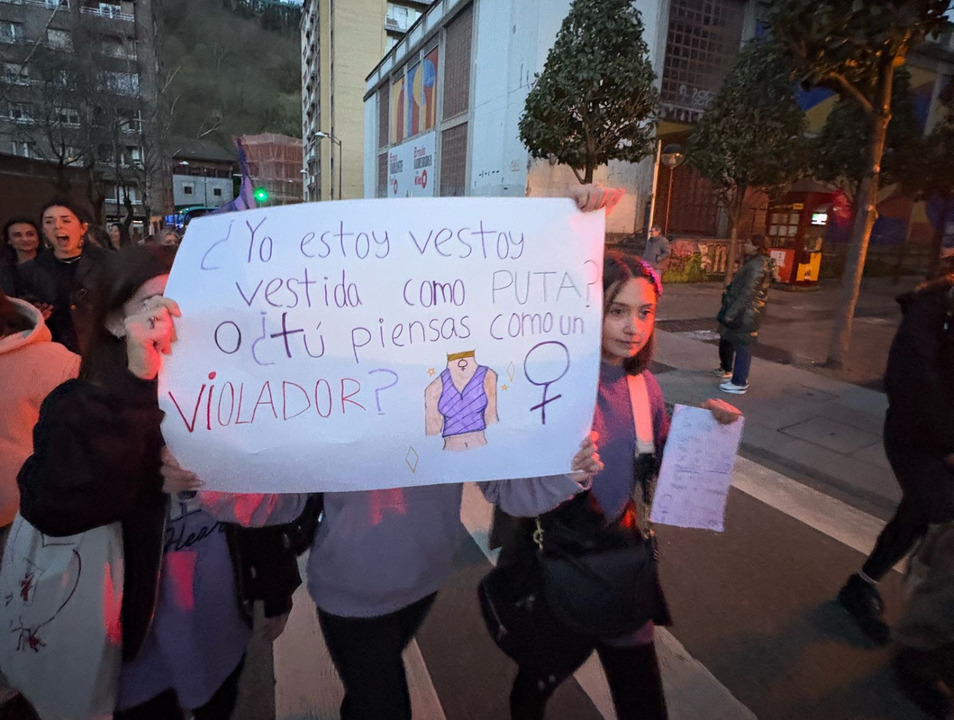 ¿Yo estoy vestoy
vestida como PUTA?
O ¿tú piensas como un
VIOLADOR?